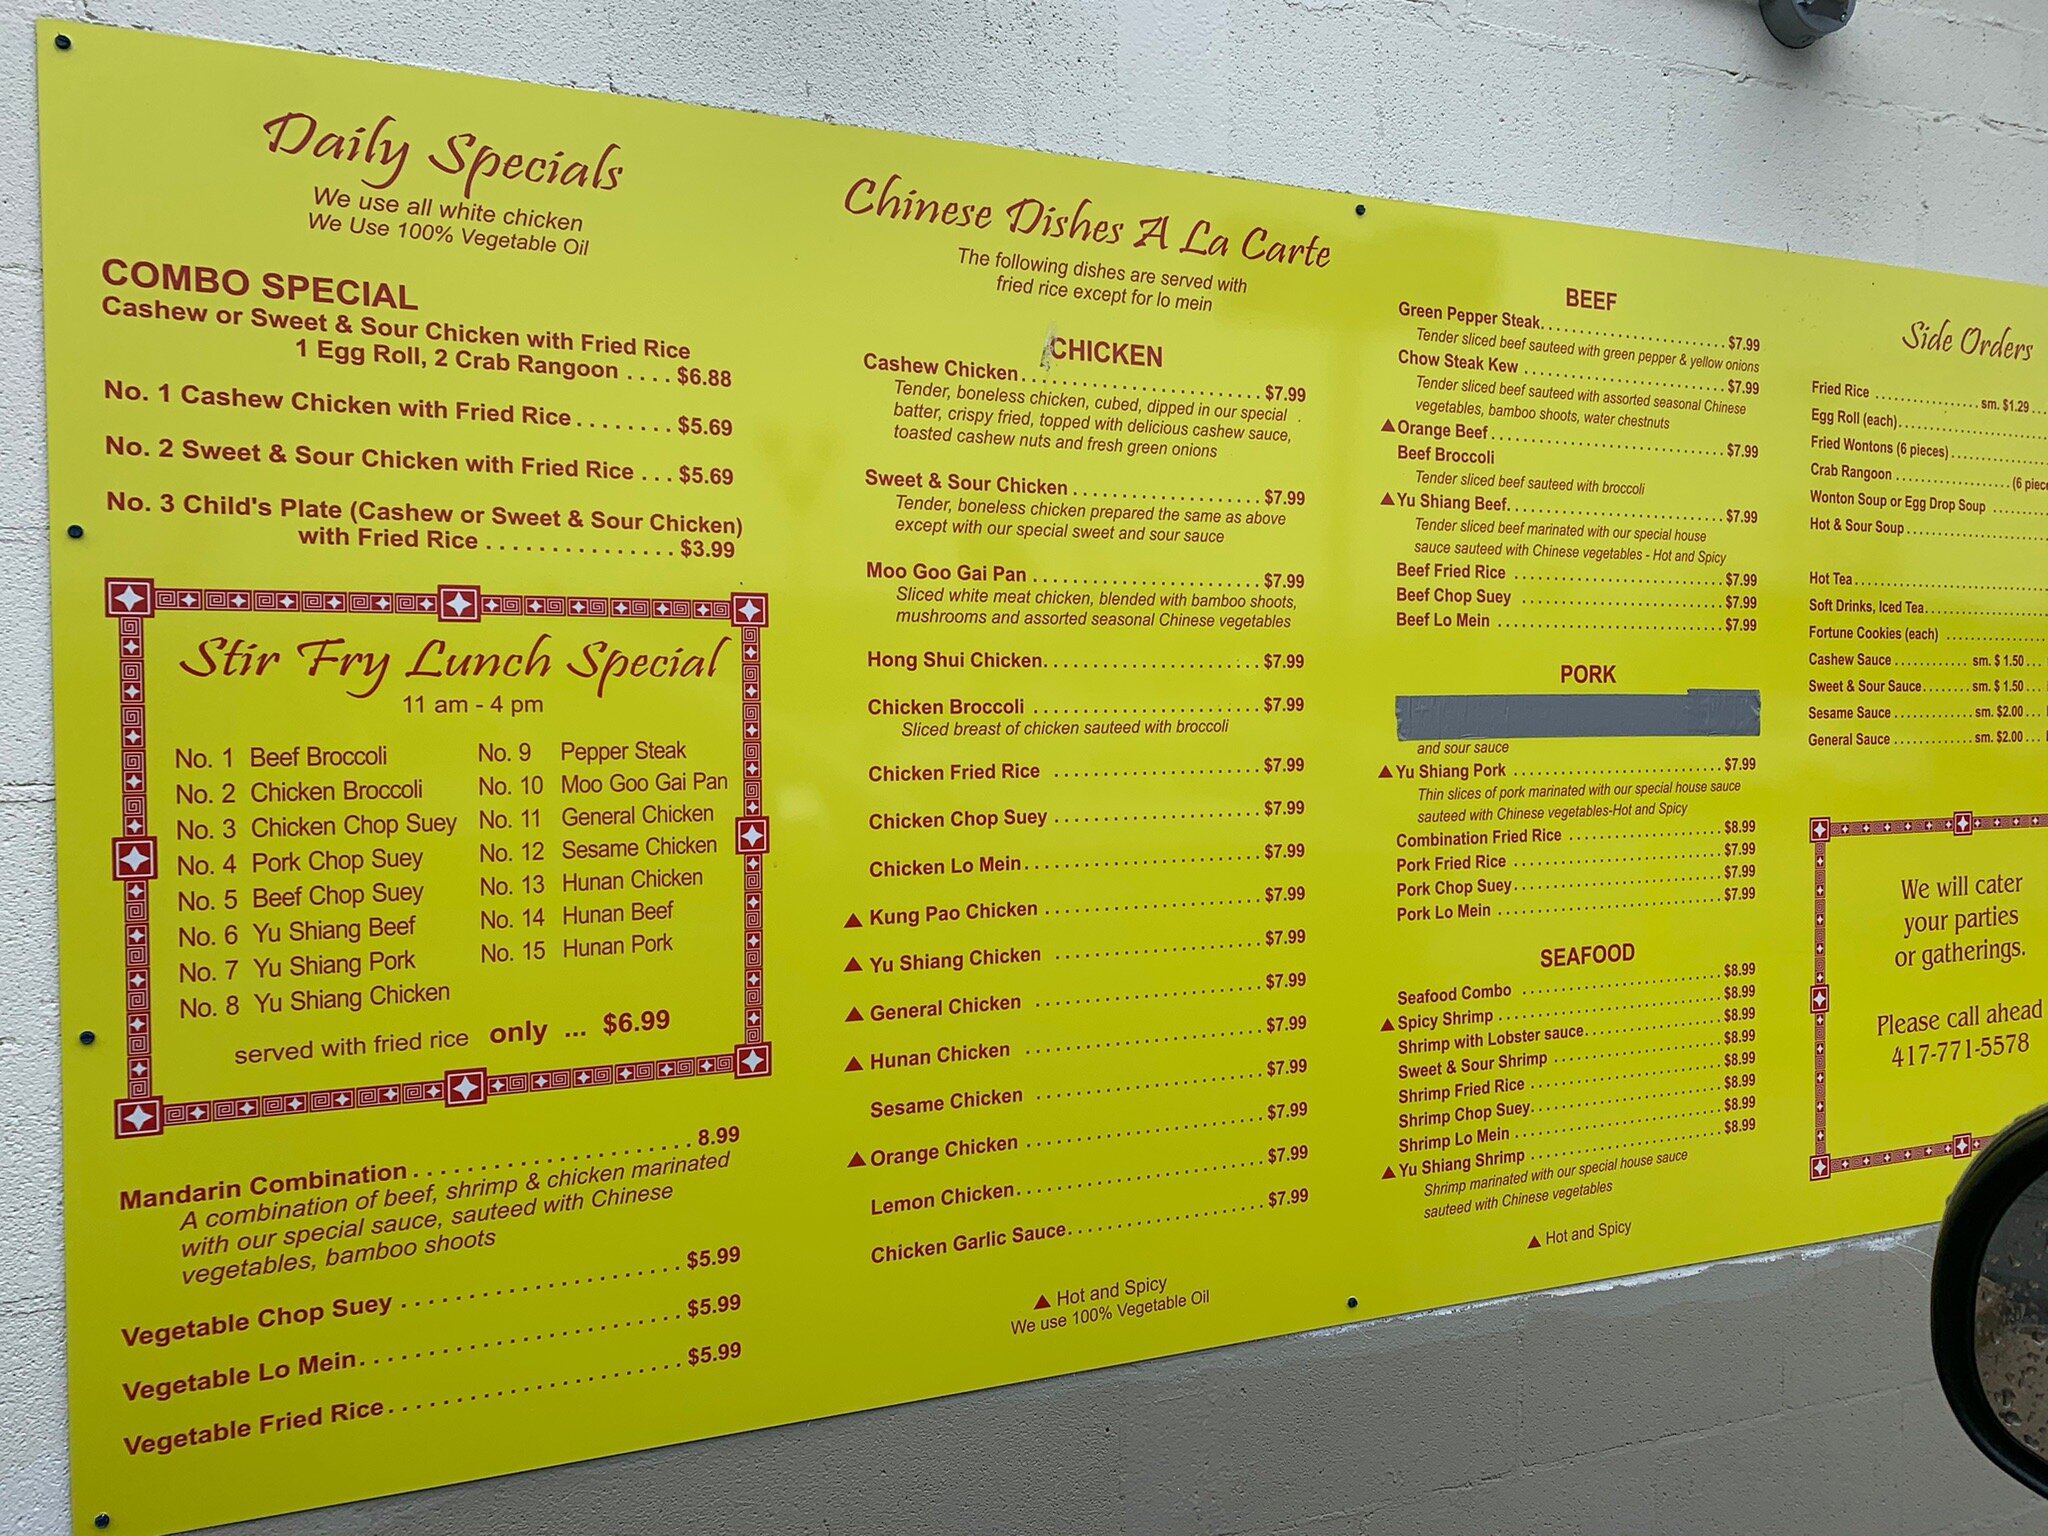 Daily Specials
We use all white chicken
We Use 100% Vegetable Oil
COMBO SPECIAL
Cashew or Sweet & Sour Chicken with Fried Rice
1 Egg Roll, 2 Crab Rangoon .... $6.88
No. 1 Cashew Chicken with Fried Rice........ $5.69
No. 2 Sweet & Sour Chicken with Fried Rice ... $5.69
No. 3 Child's Plate (Cashew or Sweet & Sour Chicken)
with Fried Rice ............... $3.99
Stir Fry Lunch Special
11 am - 4 pm
No. 1 Beef Broccoli
No. 2 Chicken Broccoli
No. 3 Chicken Chop Suey
No. 4 Pork Chop Suey
No. 5 Beef Chop Suey
No. 6 Yu Shiang Beef
No. 7 Yu Shiang Pork
No. 8 Yu Shiang Chicken
No. 9 Pepper Steak
No. 10 Moo Goo Gai Pan
No. 11 General Chicken
No. 12 Sesame Chicken
No. 13 Hunan Chicken
No. 14 Hunan Beef
No. 15 Hunan Pork
served with fried rice only ... $6.99
Mandarin Combination ...................... 8.99
A combination of beef, shrimp & chicken marinated
with our special sauce, sauteed with Chinese
vegetables, bamboo shoots
Vegetable Chop Suey ...................... $5.99
Vegetable Lo Mein......................... $5.99
Vegetable Fried Rice....................... $5.99
Chinese Dishes A La Carte
The following dishes are served with
fried rice except for lo mein
CHICKEN
Cashew Chicken......................... $7.99
Tender, boneless chicken, cubed, dipped in our special
batter, crispy fried, topped with delicious cashew sauce,
toasted cashew nuts and fresh green onions
Sweet & Sour Chicken .................... $7.99
Tender, boneless chicken prepared the same as above
except with our special sweet and sour sauce
Moo Goo Gai Pan ........................ $7.99
Sliced white meat chicken, blended with bamboo shoots,
mushrooms and assorted seasonal Chinese vegetables
Hong Shui Chicken....................... $7.99
Chicken Broccoli ........................ $7.99
Sliced breast of chicken sauteed with broccoli
Chicken Fried Rice ...................... $7.99
Chicken Chop Suey ...................... $7.99
Chicken Lo Mein......................... $7.99
▲ Kung Pao Chicken ...................... $7.99
▲ Yu Shiang Chicken ...................... $7.99
▲ General Chicken ........................ $7.99
▲ Hunan Chicken ......................... $7.99
Sesame Chicken ........................ $7.99
▲ Orange Chicken ......................... $7.99
Lemon Chicken.......................... $7.99
Chicken Garlic Sauce..................... $7.99
▲ Hot and Spicy
We use 100% Vegetable Oil
BEEF
Green Pepper Steak....................... $7.99
Tender sliced beef sauteed with green pepper & yellow onions
Chow Steak Kew ......................... $7.99
Tender sliced beef sauteed with assorted seasonal Chinese
vegetables, bamboo shoots, water chestnuts
▲ Orange Beef ............................. $7.99
Beef Broccoli
Tender sliced beef sauteed with broccoli
▲ Yu Shiang Beef........................... $7.99
Tender sliced beef marinated with our special house
sauce sauteed with Chinese vegetables - Hot and Spicy
Beef Fried Rice .......................... $7.99
Beef Chop Suey ......................... $7.99
Beef Lo Mein ............................ $7.99
PORK
and sour sauce
▲ Yu Shiang Pork .......................... $7.99
Thin slices of pork marinated with our special house sauce
sauteed with Chinese vegetables-Hot and Spicy
Combination Fried Rice ................... $8.99
Pork Fried Rice .......................... $7.99
Pork Chop Suey.......................... $7.99
Pork Lo Mein ............................ $7.99
SEAFOOD
Seafood Combo ......................... $8.99
▲ Spicy Shrimp ............................ $8.99
Shrimp with Lobster sauce................. $8.99
Sweet & Sour Shrimp ..................... $8.99
Shrimp Fried Rice ........................ $8.99
Shrimp Chop Suey........................ $8.99
Shrimp Lo Mein .......................... $8.99
▲ Yu Shiang Shrimp ........................ $8.99
Shrimp marinated with our special house sauce
sauteed with Chinese vegetables
▲ Hot and Spicy
Side Orders
Fried Rice ............... sm. $1.29 ...
Egg Roll (each)......................
Fried Wontons (6 pieces) ..............
Crab Rangoon ................. (6
Wonton Soup or Egg Drop Soup ........
Hot & Sour Soup.....................
Hot Tea.............................
Soft Drinks, Iced Tea..................
Fortune Cookies (each) ...............
Cashew Sauce ........... sm. $ 1.50 ...
Sweet & Sour Sauce........ sm. $ 1.50 ...
Sesame Sauce ............ sm. $2.00 ...
General Sauce ............ sm. $2.00 ...
We will cater
your parties
or gatherings.
Please call ahead
417-771-5578